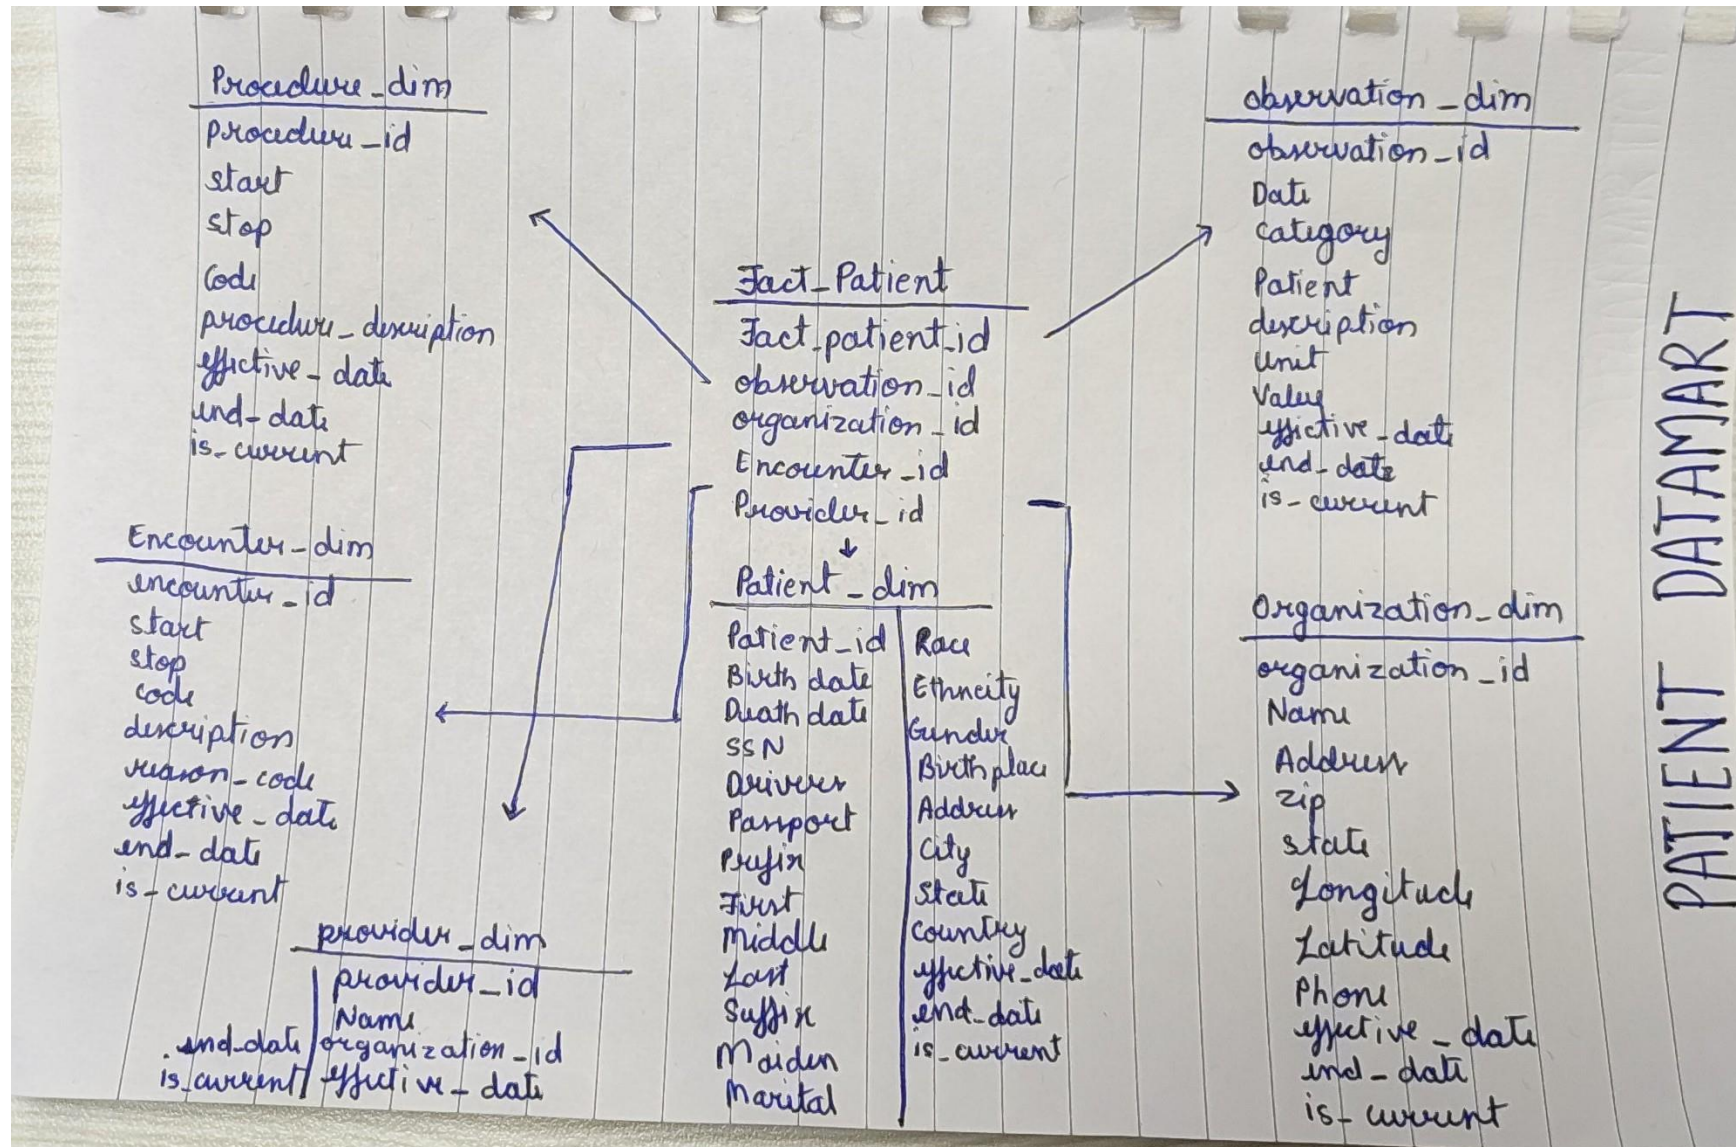 Procedure_dim
procedure_id
start
stop
Code
procedure_description
effective_date
end_date
is_current
Encounter_dim
encounter_id
start
stop
code
description
reason_code
effective_date
end_date
is_current
provider_dim
provider_id
Name
organization_id
effective_date
end_date
is_current
Fact_Patient
Fact_patient_id
observation_id
organization_id
Encounter_id
Provider_id
Patient_dim
Patient_id
Birth date
Death date
SSN
Drivers
Passport
Prefix
First
Middle
Last
Suffix
Maiden
Marital
Race
Ethncity
Gender
Birthplace
Address
City
State
Country
effective_date
end_date
is_current
observation_dim
observation_id
Date
Category
Patient
description
Unit
Value
effective_date
end_date
is_current
Organization_dim
organization_id
Name
Address
Zip
State
Longitude
Latitude
Phone
effective_date
end_date
is_current
PATIENT DATAMART